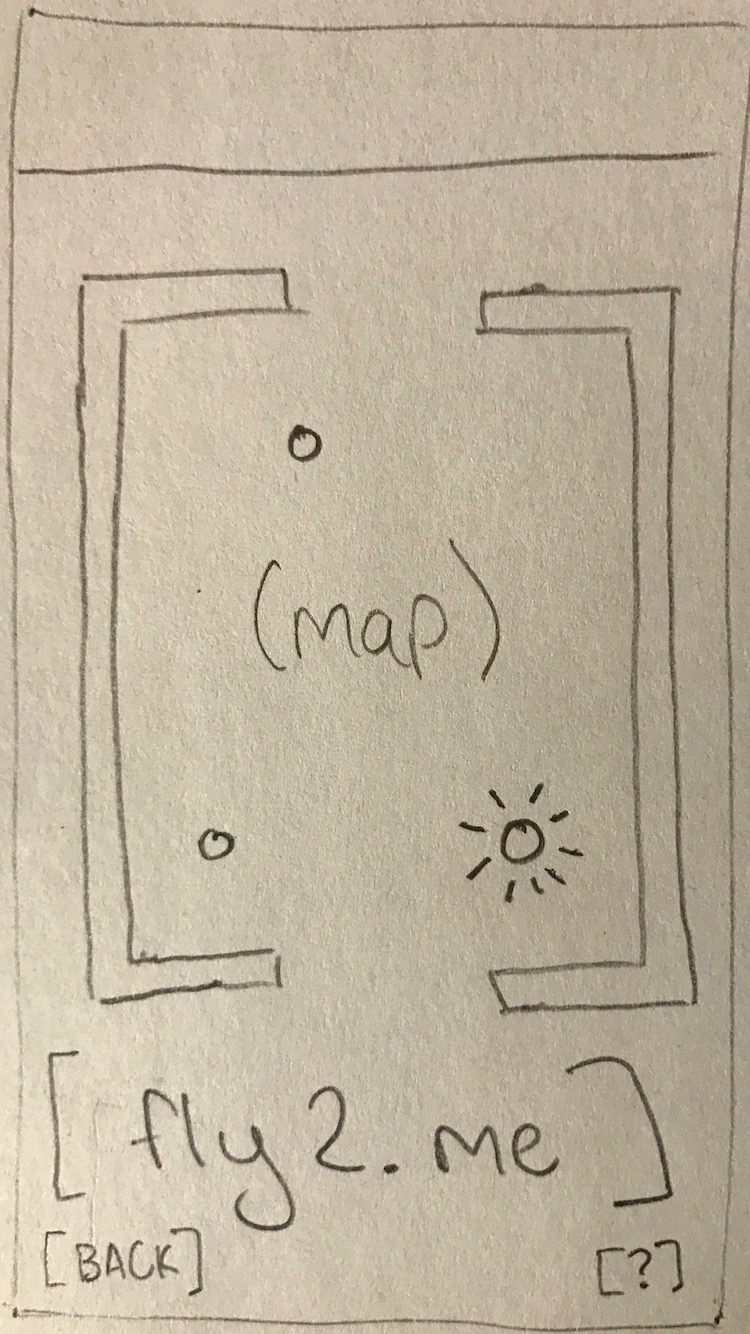 (map)
[fly2.me]
[BACK] [?]